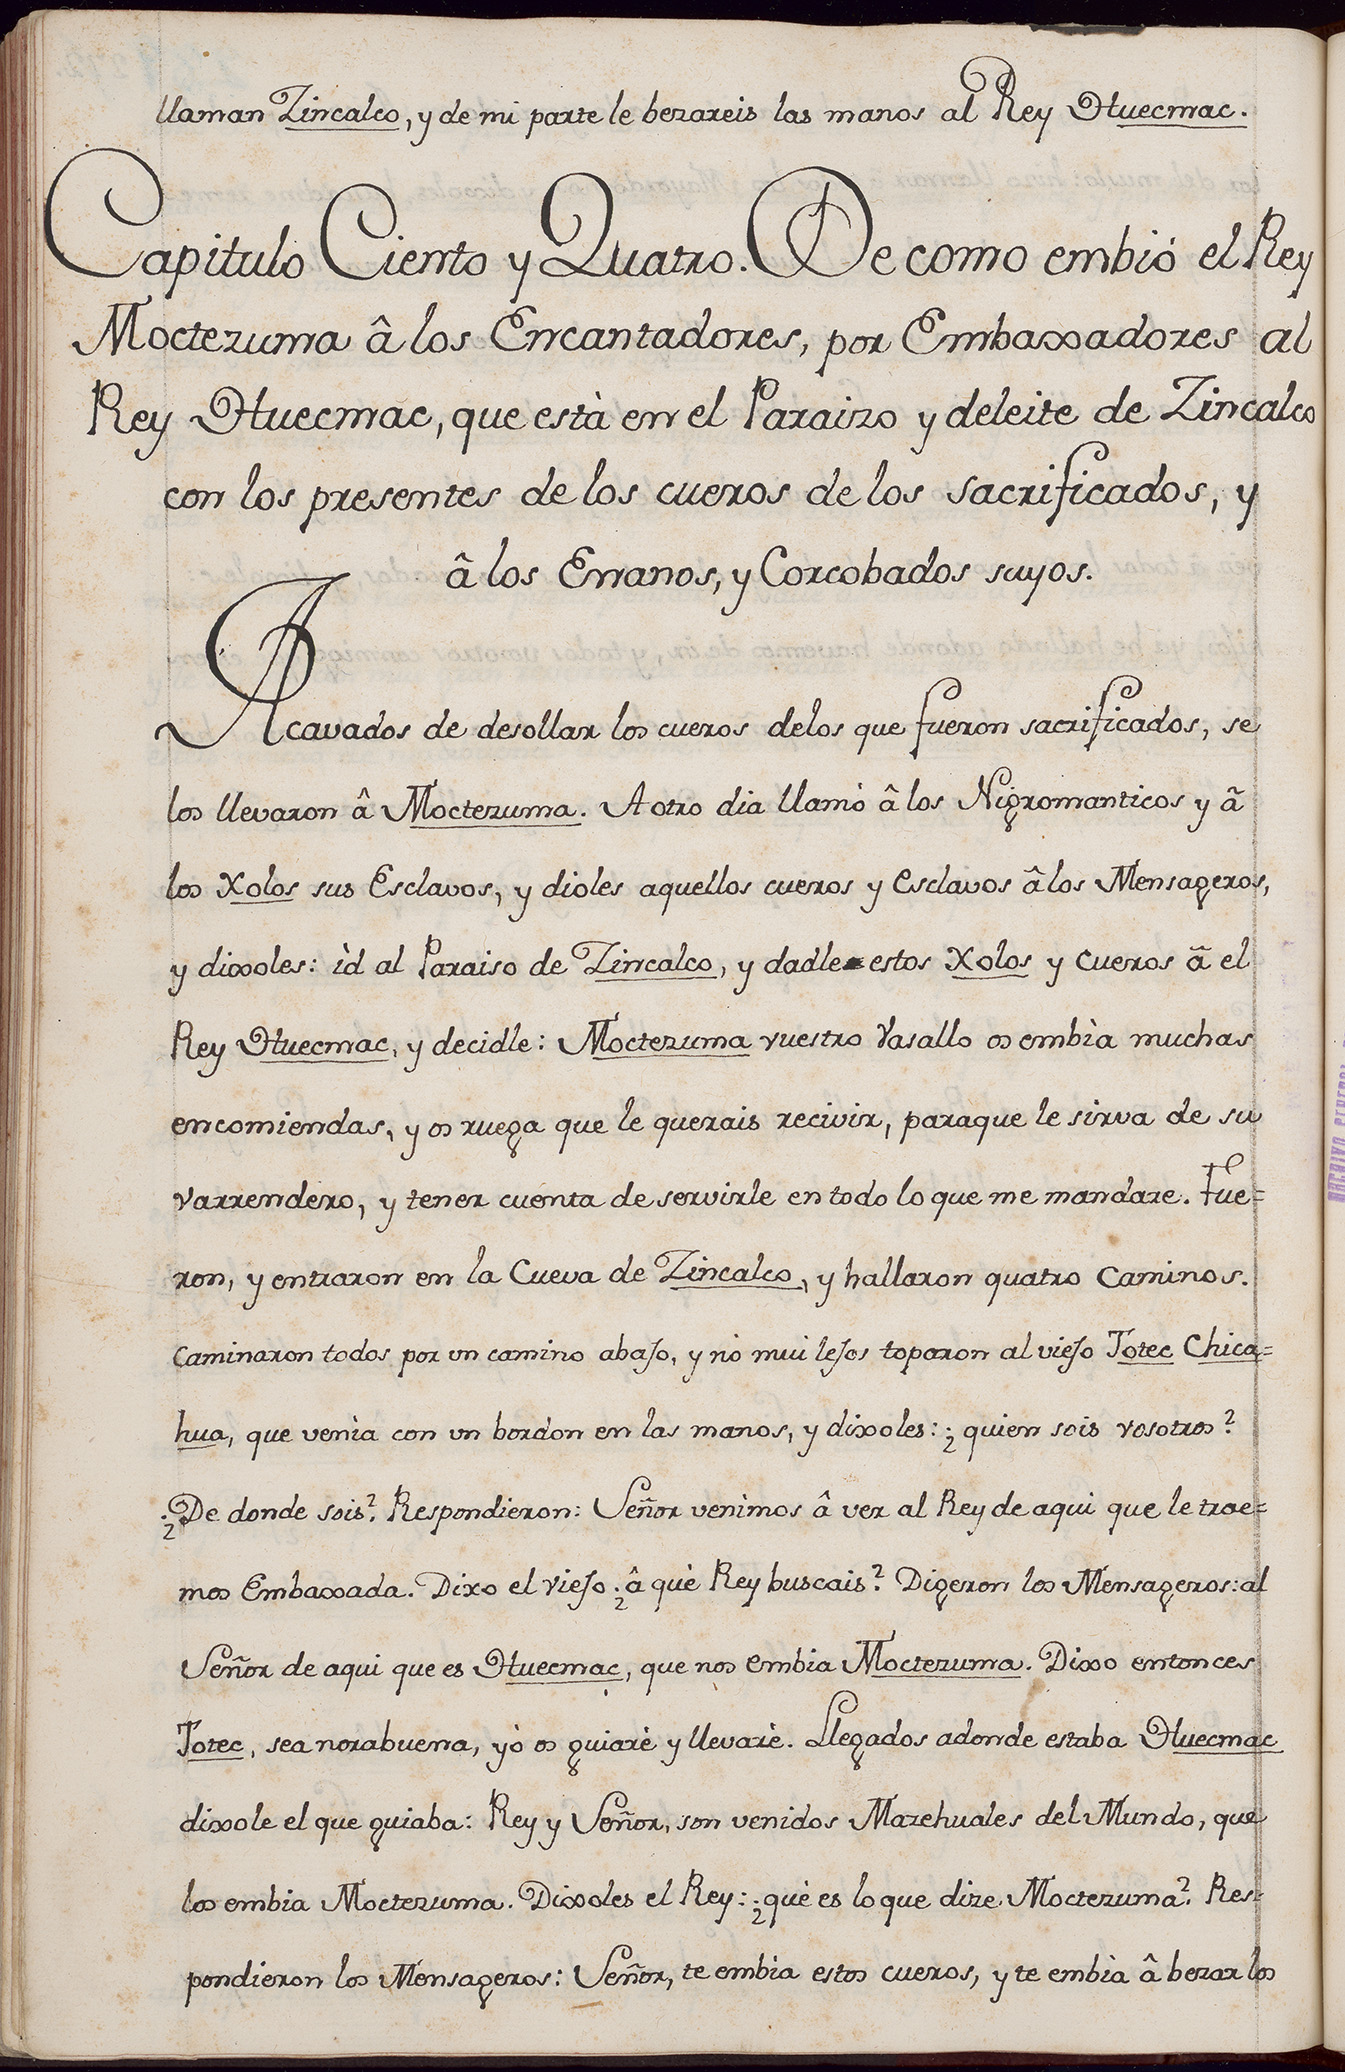 llaman Zincalco, y de mi parte le bezareis las manos al Rey Huecmac.
Capitulo Ciento y Quatro. De como embió el Rey
Moctezuma â los Encantadores, por Embaxadores al
Rey Huecmac, que està en el Paraizo y deleite de Zincalco
con los presentes de los cueros de los sacrificados, y
â los Enanos, y Corcobados suyos.
Acavados de desollar los cueros delos que fueron sacrificados, se
los llevaron â Moctezuma. A otro dia llamó â los Nigromanticos y â
los Xolos sus Esclavos, y dioles aquellos cueros y esclavos â los Mensageros,
y dixoles: id al Paraiso de Zincalco, y dadle estos Xolos y cueros â el
Rey Huecmac, y decidle: Moctezuma vuestro Vasallo os embìa muchas
encomiendas, y os ruega que le querais recivir, paraque le sirva de su
varrendero, y tener cuenta de servirle en todo lo que me mandare. Fue=
ron, y entraron en la Cueva de Zincalco, y hallaron quatro Caminos.
Caminaron todos por un camino abajo, y no mui lejos toparon al viejo Totec Chica=
hua, que venìa con un bordon en las manos, y dixoles: ¿quien sois vosotros?
¿De donde sois? Respondieron: Señor venimos â ver al Rey de aqui que le trae=
mos Embaxada. Dixo el viejo ¿â què Rey buscais? Digeron los Mensageros: al
Señor de aqui que es Huecmac, que nos embia Moctezuma. Dixo entonces
Totec, sea norabuena, yò os guiarè y llevarè. Llegados adonde estaba Huecmac
dixole el que guiaba: Rey y Señor, son venidos Mazehuales del Mundo, que
los embia Moctezuma. Dixoles el Rey: ¿què es lo que dize Moctezuma? Res=
pondieron los Mensageros: Señor, te embia estos cueros, y te embìa â bezar los